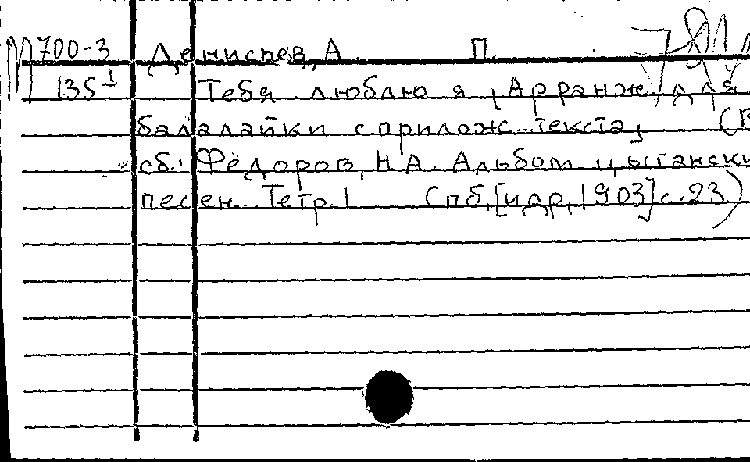 М 700-3 Денисьев, А. П.
135¹ Тебя люблю я [Арранж. для
балалайки с прилож. текста] (В
сб.: Федоров, Н.А. Альбом цыгански
песен. Тетр. 1 Спб, [ц.д.р. 1903] с. 23)